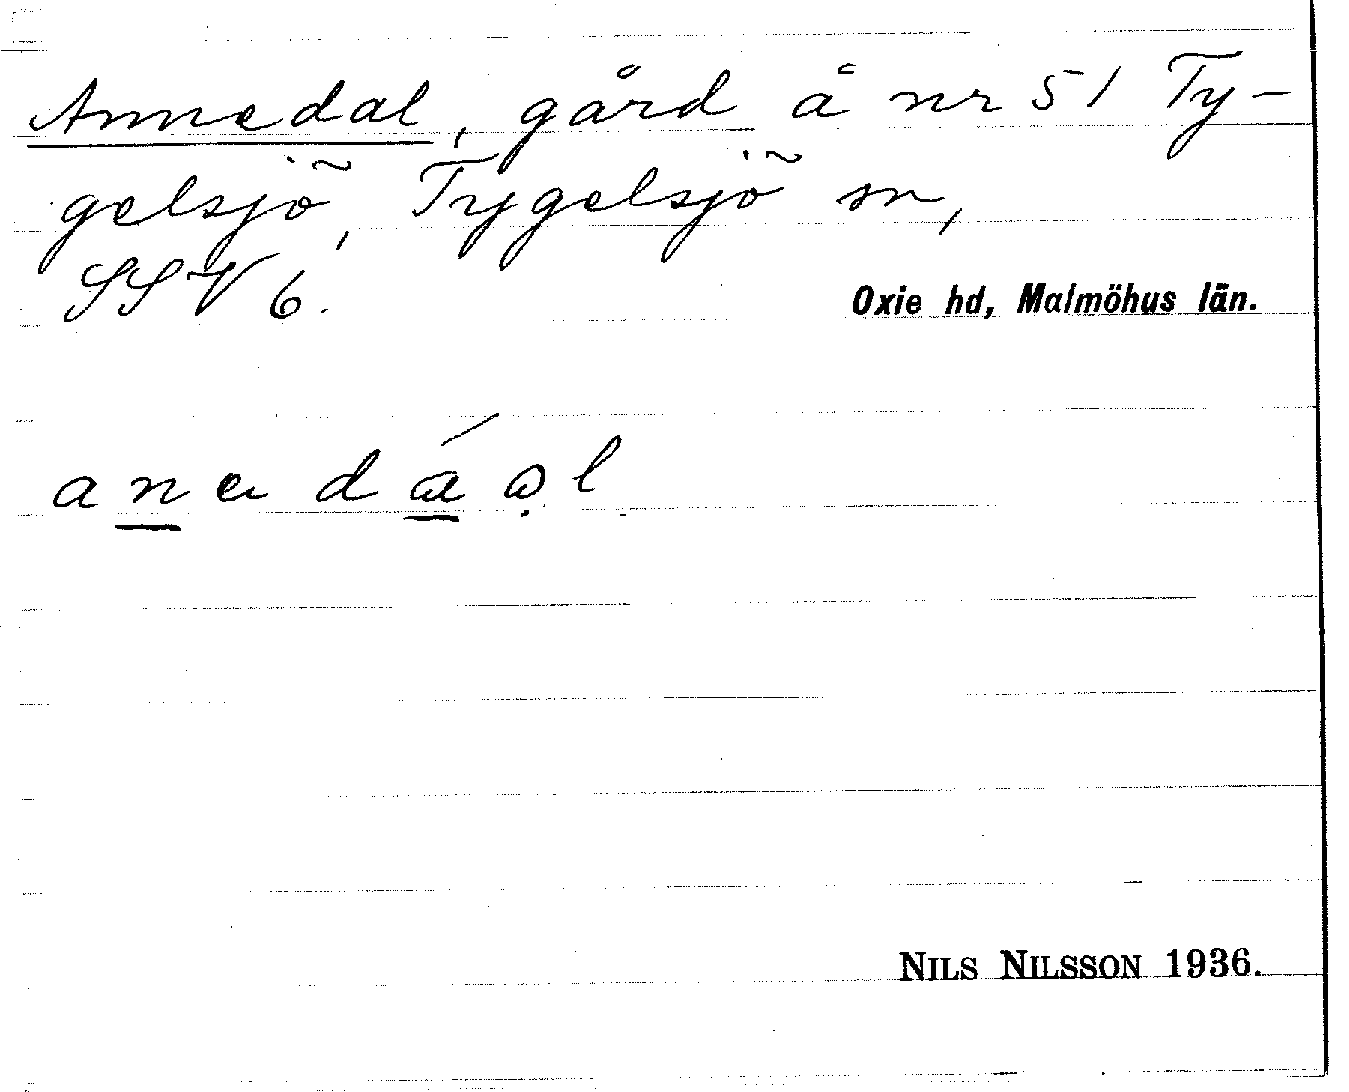 Annedal, gård å nr 51 Ty-
gelsjö, Tygelsjö sn,
SSV 6.
Oxie hd, Malmöhus län.
NILS NILSSON 1936.